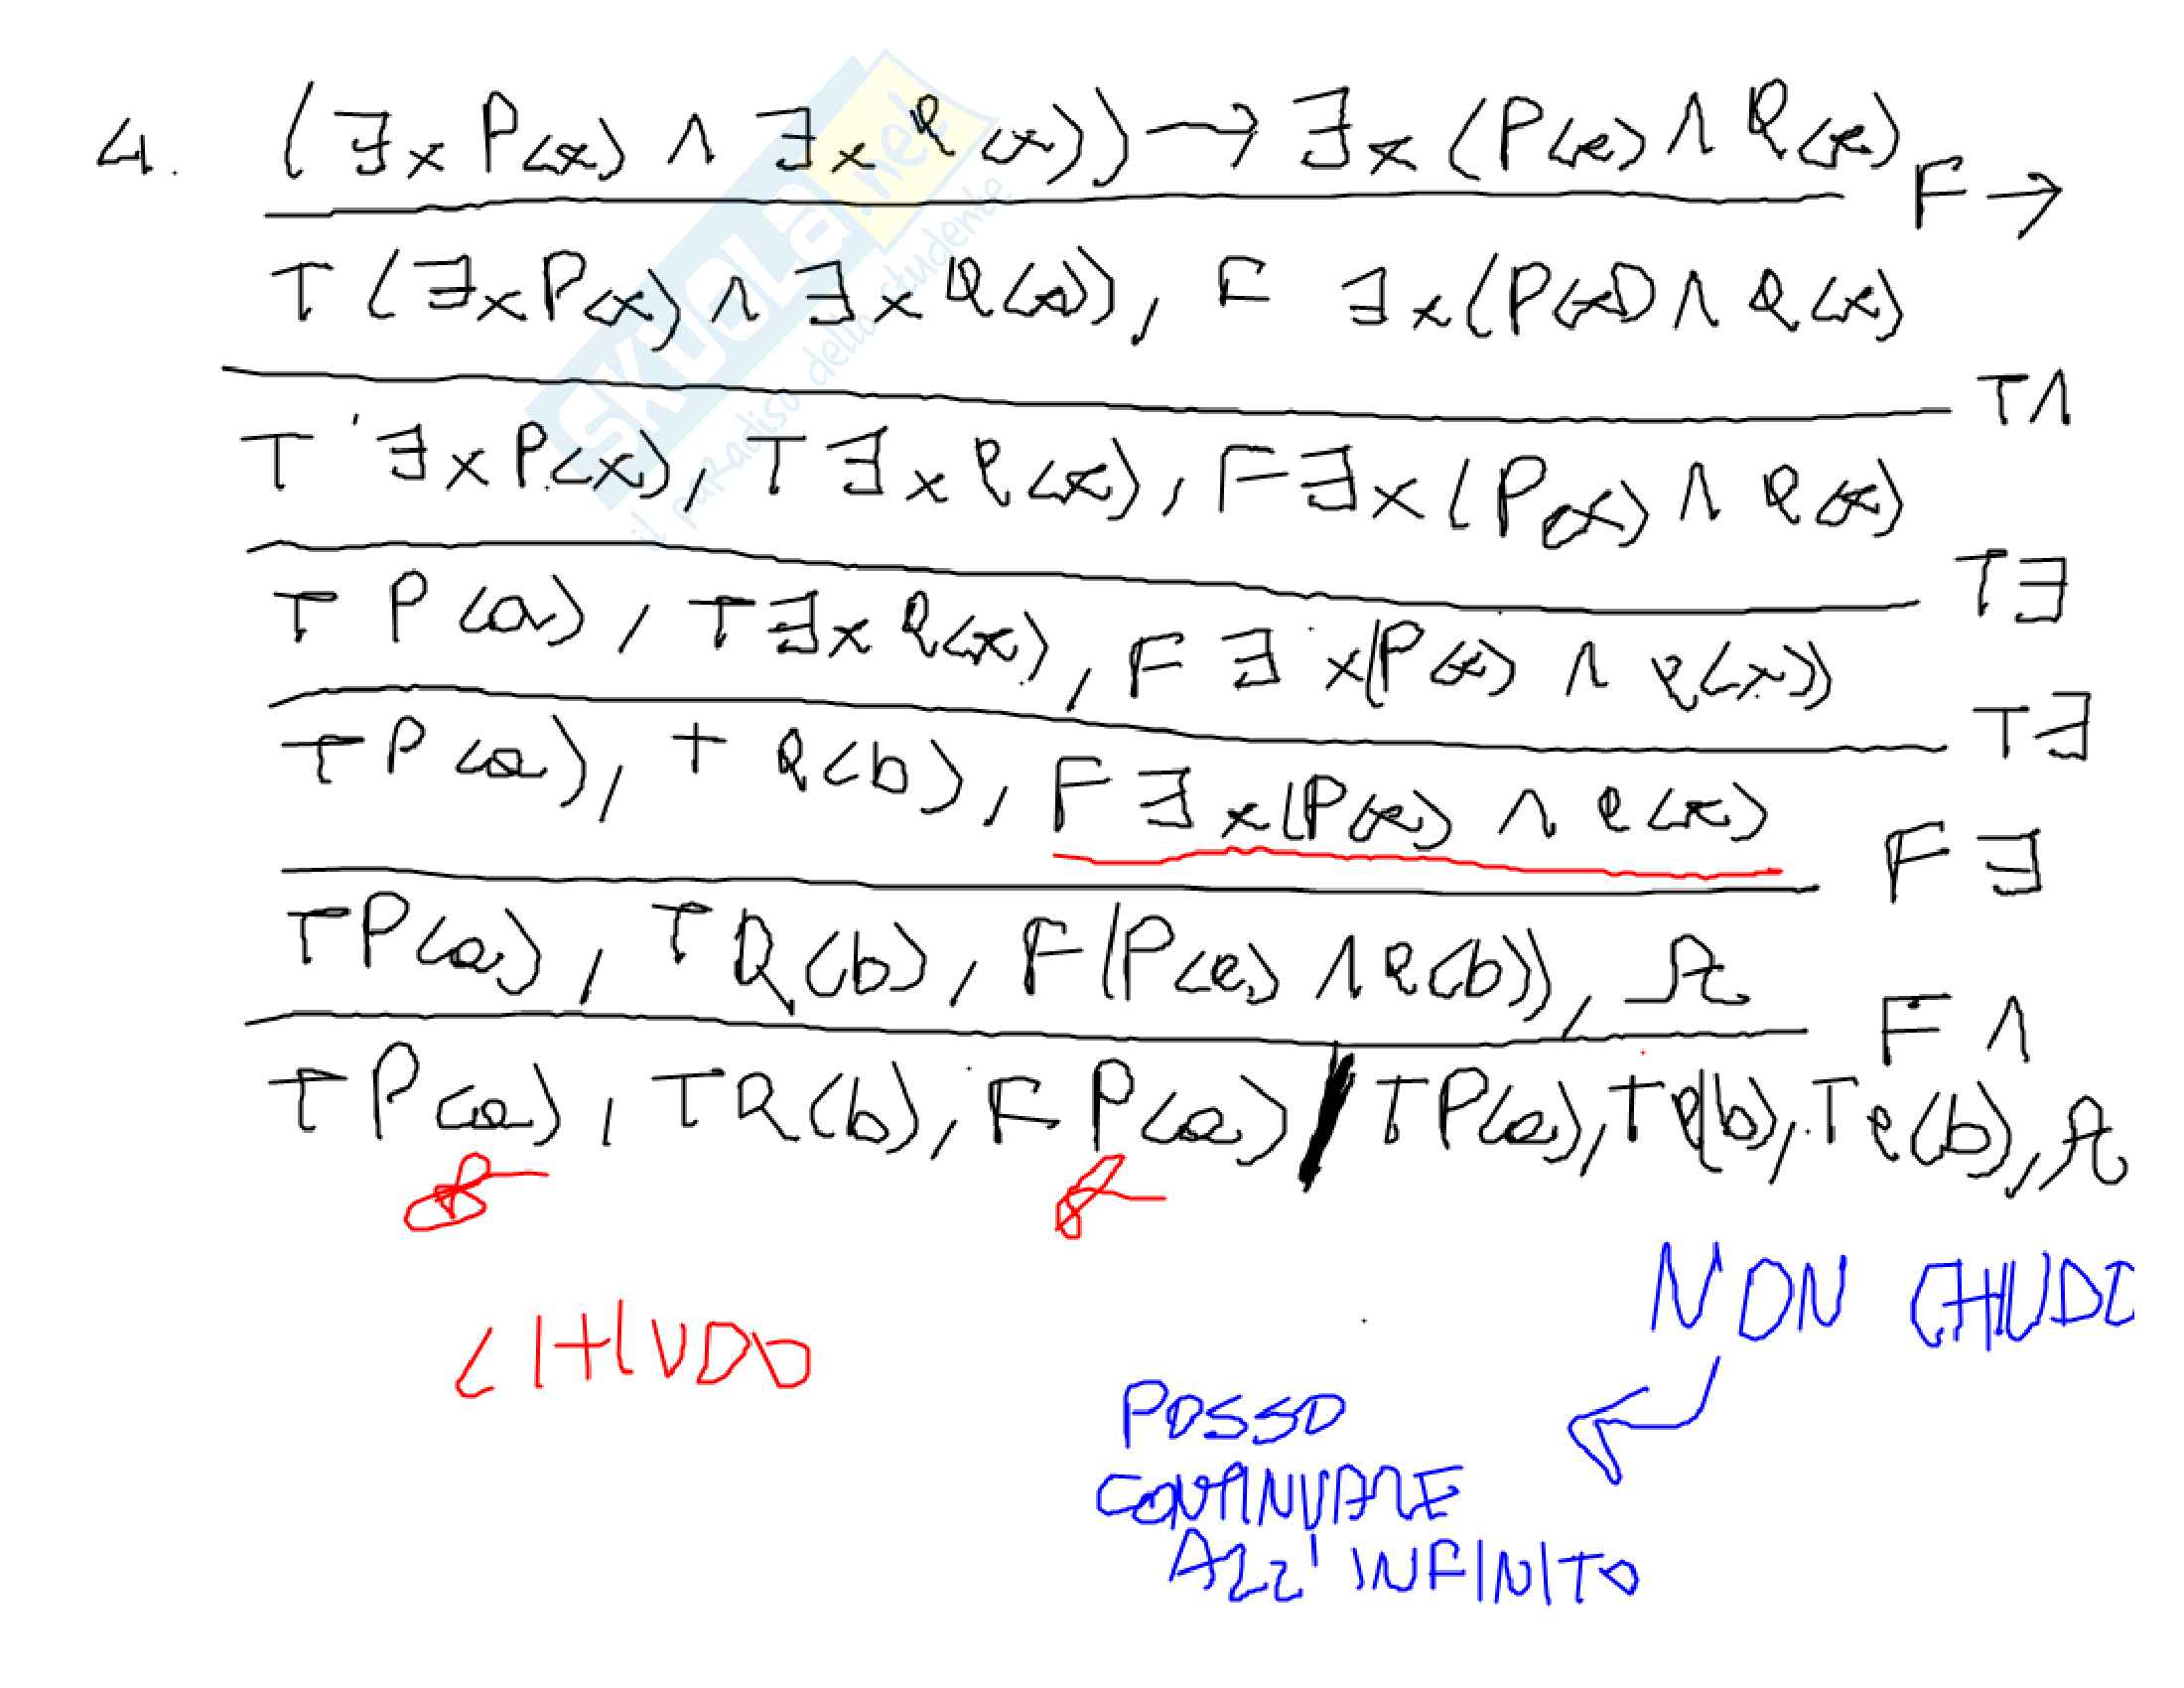 4. (∃x P(x) ∧ ∃x Q(x)) → ∃x (P(x) ∧ Q(x) F→
T (∃x P(x) ∧ ∃x Q(x)), F ∃x (P(x) ∧ Q(x)
T∧
T ∃x P(x), T ∃x Q(x), F ∃x (P(x) ∧ Q(x)
T∃
T P(a), T ∃x Q(x), F ∃x (P(x) ∧ Q(x))
T∃
T P(a), T Q(b), F ∃x (P(x) ∧ Q(x)
F∃
T P(a), T Q(b), F (P(a) ∧ Q(b)),
F∧
T P(a), T Q(b), F P(a) / T P(a), T Q(b), T Q(b),
CHIUDO
NON CHIUDO
POSSO
CONTINUARE
ALL'INFINITO
SKUOLA.net
il paradiso dello studente